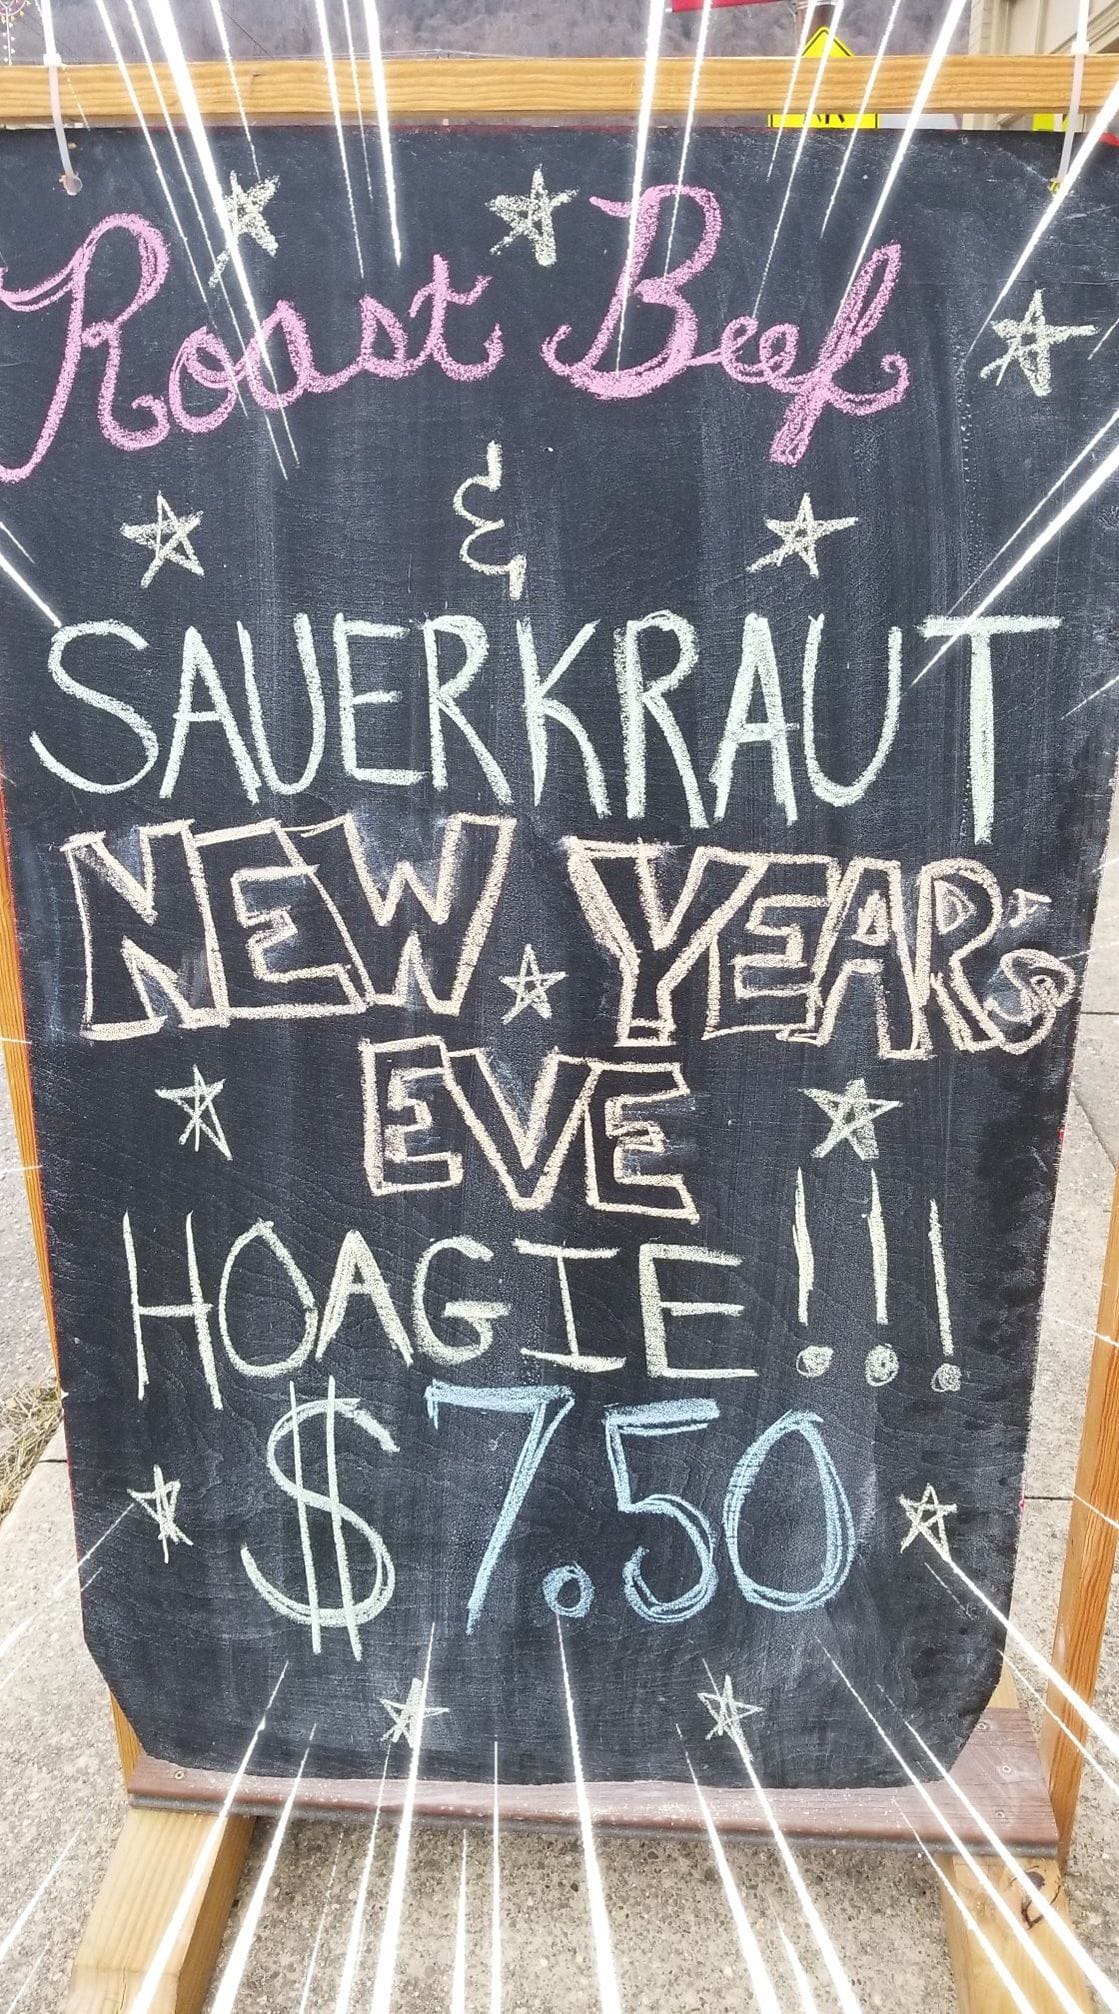 Roast Beef
&
SAUERKRAUT
NEW YEAR'S
EVE
HOAGIE!!!
$7.50